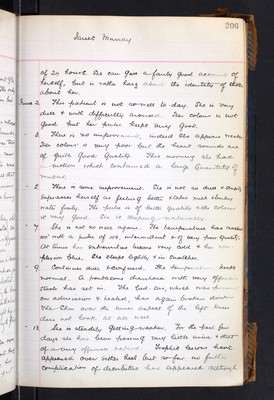 206
Janet Murray
of 24 hours. She can give a fairly good account of
herself, but is rather hazy about the identity of those
about her.
2. This patient is not so well to day. She is very
dull & with difficulty aroused. Her colour is not
good but her pulse keeps very good.
3. There is no improvement, indeed she appears weaker
Her colour is very poor but the heart sounds are
of quite Good Quality. This morning she had
motion which contained a large Quantity of
5. There is some improvement. She is not so dull &
expresses herself as feeling better & takes most
food fairly. The pulse is of better quality & the colour
is very Good. She is sleeping naturally
7. She is not so well again. The temperature has reached
with a pulse of intermittent & of very poor Quality.
At times her extremities become very cold &
She sleeps lightly & is
9. Continues dull & confused. The temperature keeps
normal. A troublesome diarrhoea with very offensive
stools has set in. The bed-sore, which was
on admission & healed, has again broken down
The skin over the inner aspect of the left knee
does not look at all well.
13. She is steadily getting weaker. For the past few
days she has been passing very little urine & that
of a very offensive nature. Trophic lesions have
appeared over either heel but so far no further
complication of decubitus has appeared although